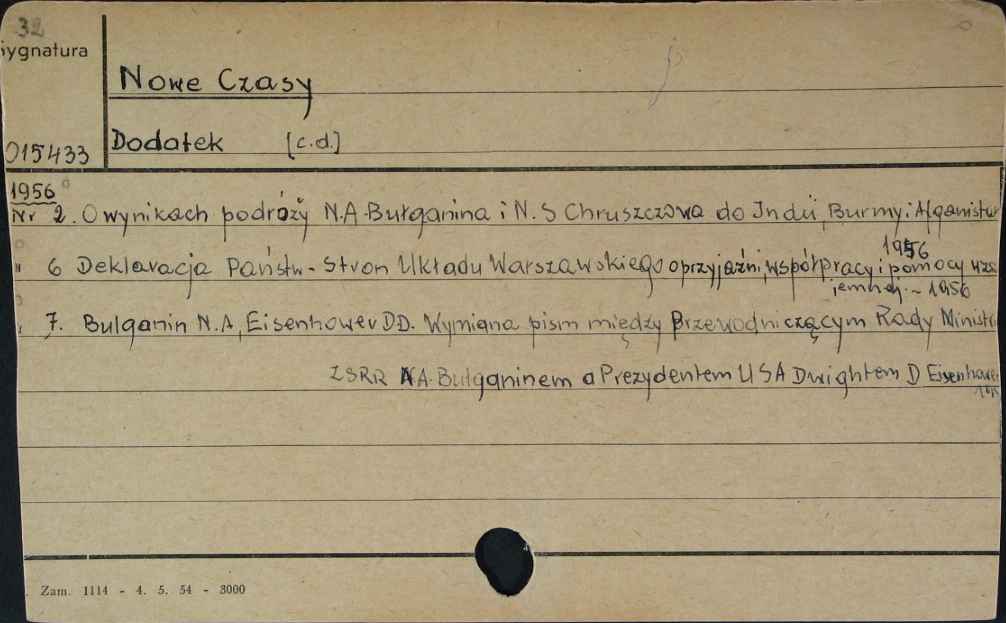 32
sygnatura
Nowe Czasy
Dodatek [c.d.]
015433
1956
Nr 2. O wynikach podróży N.A. Bułganina i N.S Chruszczowa do Indii, Burmy i Afganistan
1956
" 6 Deklaracja Państw-Stron Układu Warszawskiego o przyjaźni, współpracy i pomocy wza
jemnej. - 1956
" 7. Bułganin N.A, Eisenhower D.D. Wymiana pism między Przewodniczącym Rady Ministr
ZSRR N.A. Bułganinem a Prezydentem USA Dwightem D Eisenhowe
Zam. 1114 - 4. 5. 54 - 3000